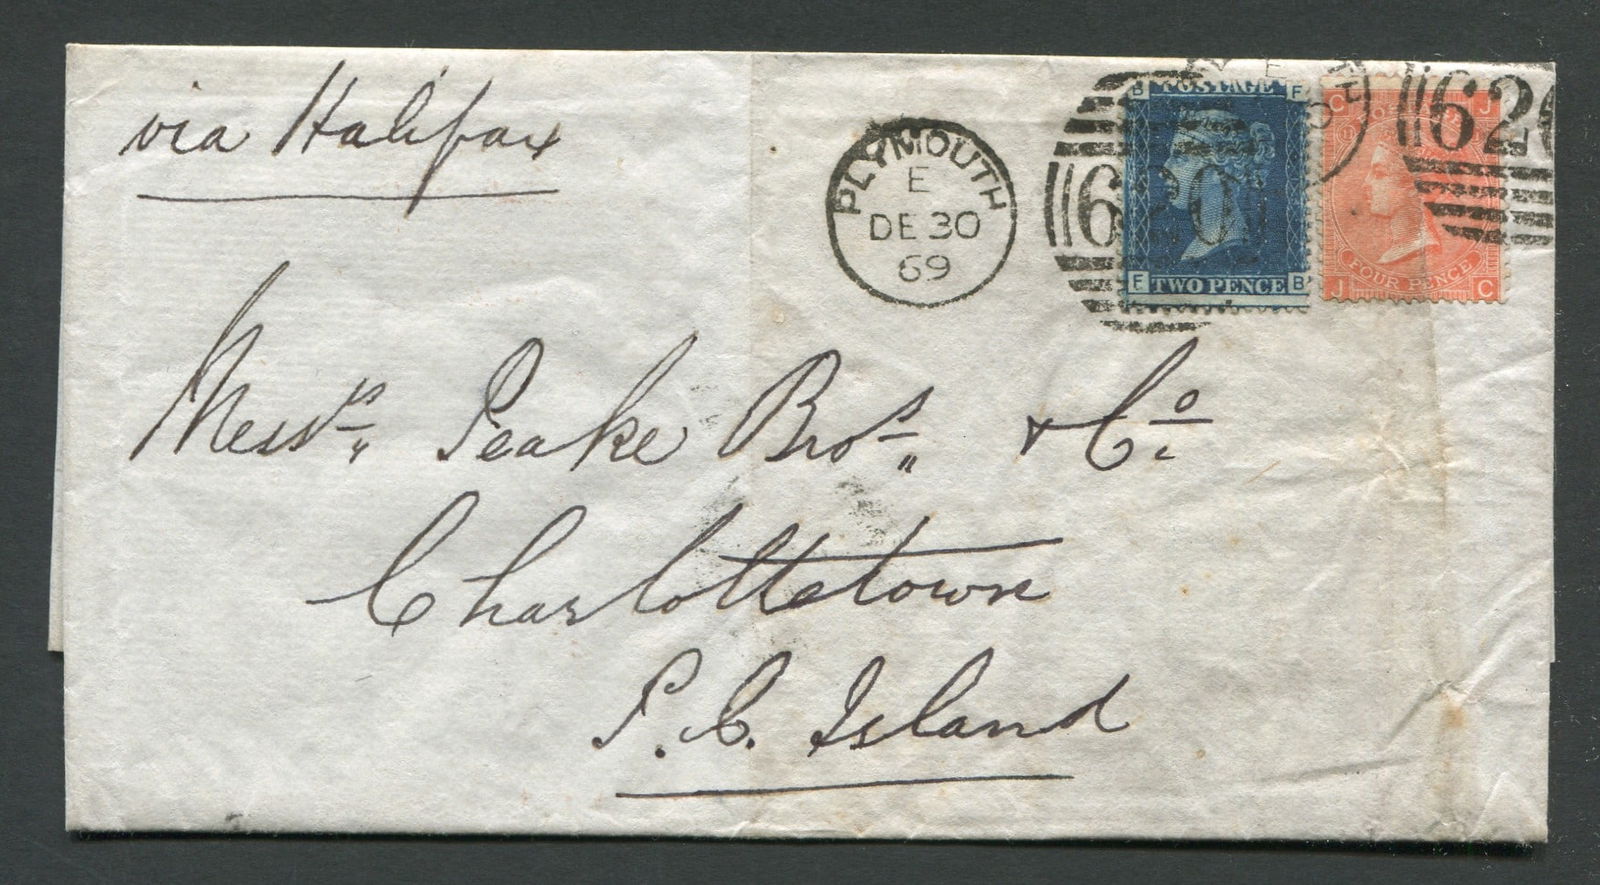 via Halifax
PLYMOUTH
E
DE 30
69
620
B POSTAGE F
F TWO PENCE B
C J
FOUR PENCE
J C
620
Messrs. Peake Bros. & Co.
Charlottetown
P. E. Island